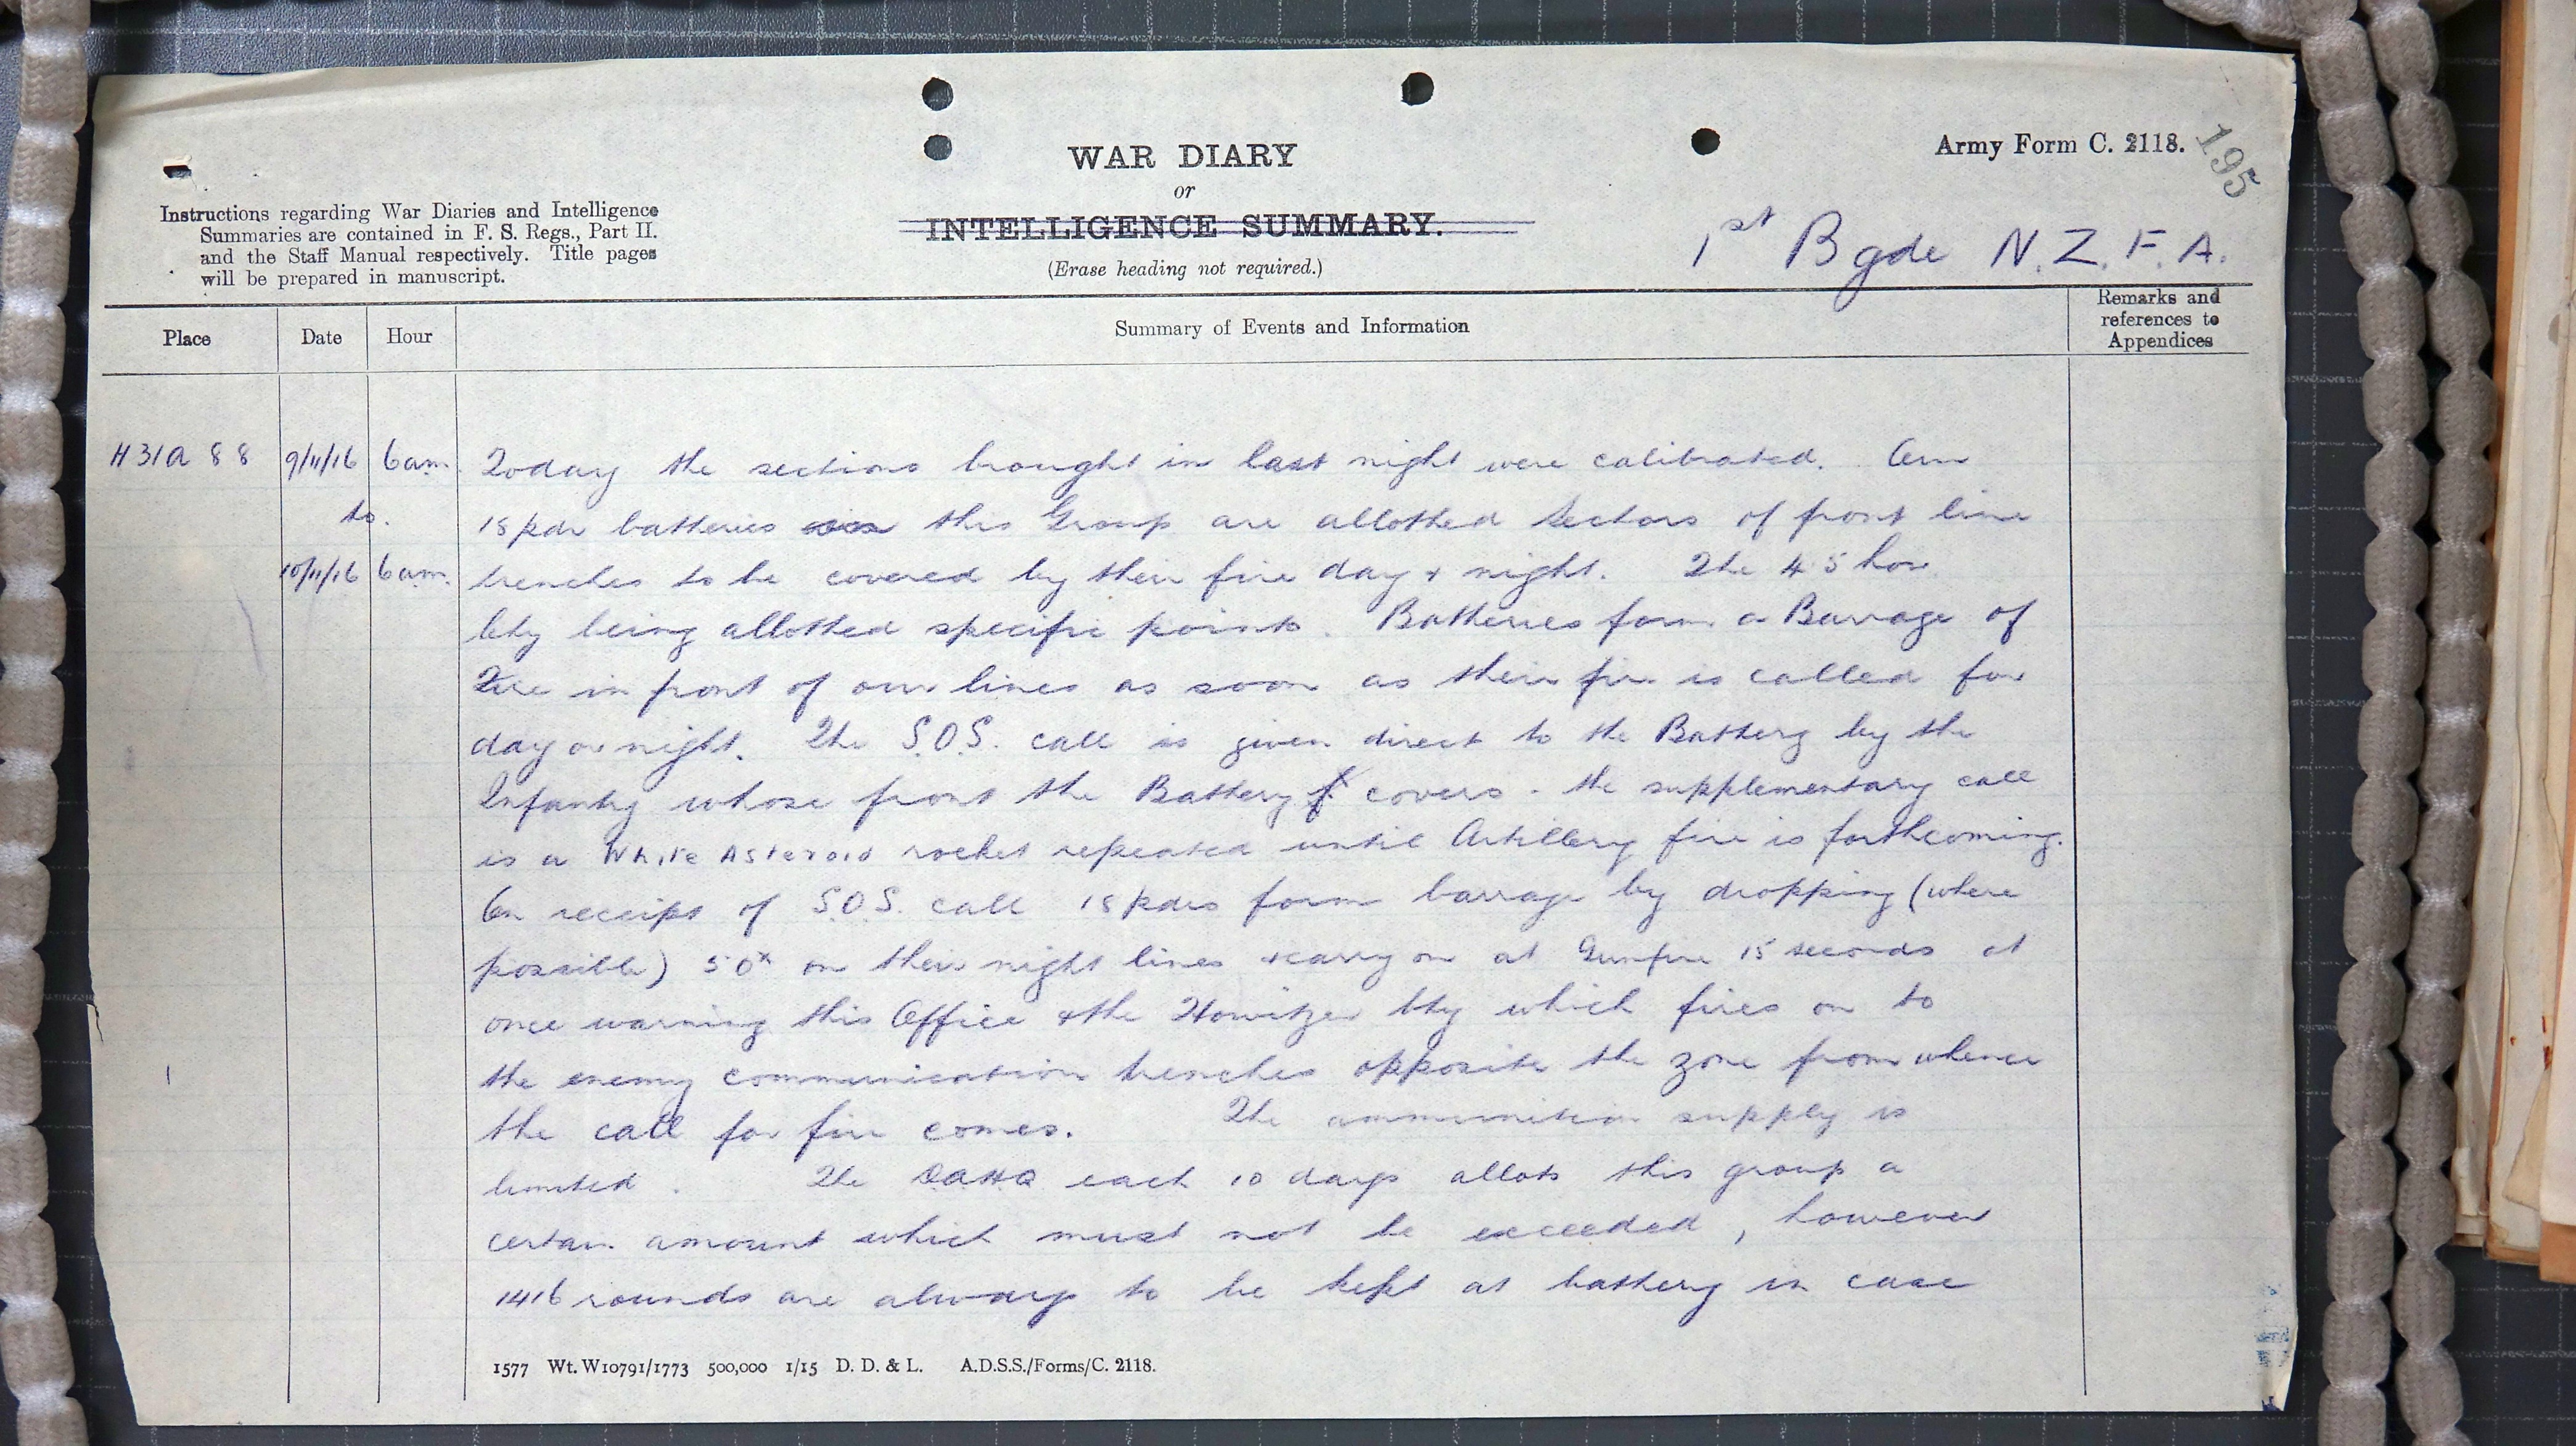 Army Form C. 2118.
195
WAR DIARY
or
INTELLIGENCE SUMMARY.
(Erase heading not required.)
Instructions regarding War Diaries and Intelligence
Summaries are contained in F. S. Regs., Part II.
and the Staff Manual respectively. Title pages
will be prepared in manuscript.
1st Bgde N.Z.F.A.
Place Date Hour Summary of Events and Information Remarks and references to Appendices
H31A 88 9/11/16 6am Today the sections brought in last night were calibrated. Our
to. 18 pdr batteries this Group are allotted Sectors of front line
10/11/16 6am. trenches to be covered by their fire day & night. The 4.5 how
bty being allotted specific points. Batteries form a Barrage of
Fire in front of our lines as soon as their fire is called for
day or night. The S.O.S. call is given direct to the Battery by the
Infantry whose front the Battery covers - the supplementary call
is a White Asteroid rocket repeated until Artillery fire is forthcoming.
On receipt of S.O.S. call 18 pdrs form barrage by dropping (where
possible) 50x on their night lines & carry on at Gunfire 15 seconds at
once warning this Office & the Howitzer bty which fires on to
the enemy communication trenches opposite the zone from whence
the call for fire comes. The ammunition supply is
limited. The each 10 days allots this group a
certain amount which must not be exceeded, however
1416 rounds are always to be kept at battery in case
1577 Wt. W10791/1773 500,000 1/15 D. D. & L. A.D.S.S./Forms/C. 2118.